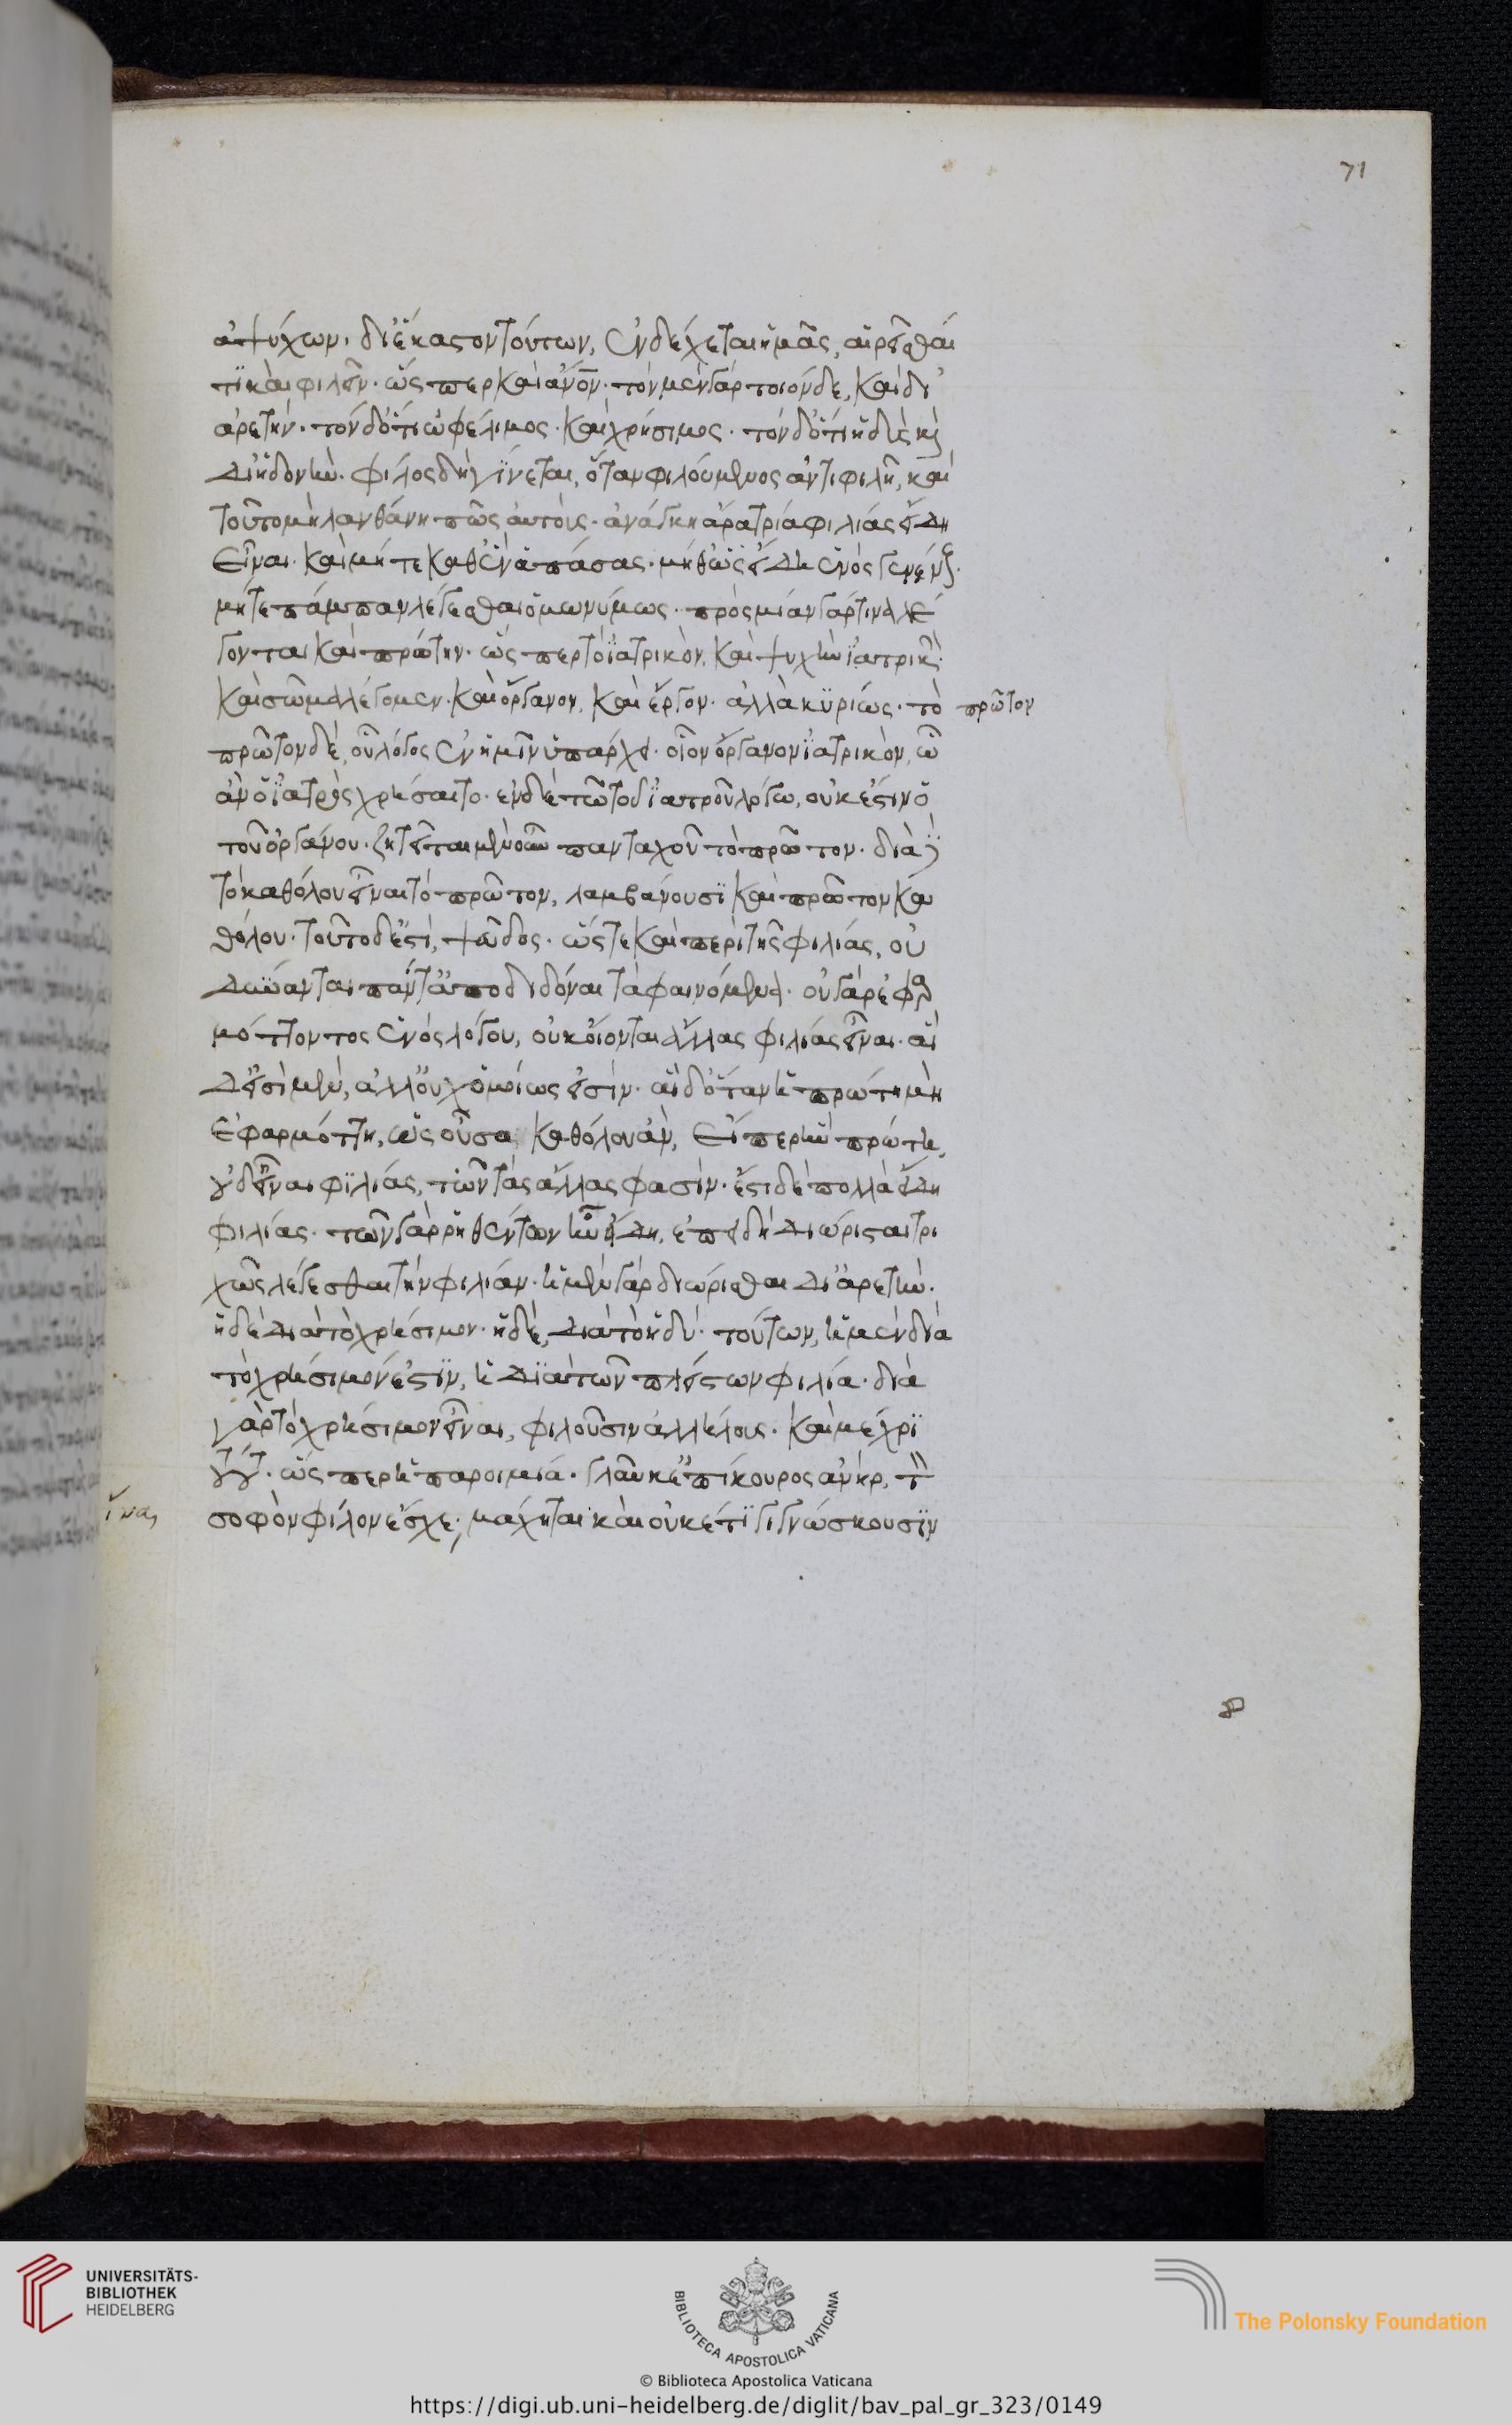 71
ἀψύχων, δι' ἕκαστον τούτων, ἐνδέχεται ἡμᾶς, αἱρεῖσθαί
τι καὶ φιλεῖν. ὥσπερ καὶ ἄνον. τὸν μὲν γὰρ τοιόνδε, καὶ δι'
ἀρετὴν. τὸν δ' ὅτι ὠφέλιμος. καὶ χρήσιμος. τὸν δ' ὅτι ἡδὺς καὶ
δι' ἡδονὴν. φίλος δὴ γίνεται, ὅταν φιλούμενος ἀντιφιλῆ, καὶ
τοῦτο μὴ λανθάνη πῶς αὐτοῖς. ἀνάγκη ἄρα τρία φιλίας εἴδη
εἶναι. καὶ μήτε καθ' ἓν ἁπάσας. μήθ' ὡς εἴδη ἑνὸς γένους.
μήτε πάμπαν λέγεσθαι ὁμωνύμως. πρὸς μίαν γάρ τινα λέ
γονται καὶ πρώτην. ὥσπερ τὸ ἰατρικὸν, καὶ ψυχὴν ἰατρικὴν
καὶ σῶμα λέγομεν. καὶ ὄργανον, καὶ ἔργον. ἀλλὰ κυρίως. τὸ πρῶτον
πρῶτον δὲ, οὗ λόγος ἐν ἡμῖν ὑπάρχει. οἷον ὄργανον ἰατρικὸν, ὧ
ἂν ὁ ἰατρὸς χρήσαιτο. ἐν δὲ τῶ τοῦ ἰατροῦ λόγω, οὐκ ἔστιν ὁ
τοῦ ὀργάνου. ζητεῖται μὲν οὖν πανταχοῦ τὸ πρῶτον. διὰ δὲ
τὸ καθόλου εἶναι τὸ πρῶτον, λαμβάνουσι καὶ πρῶτον κα
θόλου. τοῦτο δ' ἐστὶ, ψεῦδος. ὥστε καὶ περὶ τῆς φιλίας, οὐ
δύνανται πάντα ἀποδιδόναι τὰ φαινόμενα. οὐ γὰρ ἐφαρ
μόττοντος ἑνὸς λόγου, οὐκ οἴονται ἄλλας φιλίας εἶναι. αἱ
δ' εἰσὶ μὲν, ἀλλ' οὐχ ὁμοίως εἰσὶν. αἱ δ' ὅταν ἡ πρώτη μὴ
ἐφαρμόττη, ὡς οὖσα καθόλου ἂν, εἴπερ ἦν πρώτη,
οὐδ' εἶναι φιλίας, τῶν τὰς ἄλλας φασὶν. ἔστι δὲ πολλὰ εἴδη
φιλίας. τῶν γὰρ ῥηθέντων ἦν εἴδη, ἐπειδὴ διώρισται τρι
χῶς λέγεσθαι τὴν φιλίαν. ἡ μὲν γὰρ διώρισθαι δι' ἀρετὴν.
ἡ δὲ διὰ τὸ χρήσιμον. ἡ δὲ, διὰ τὸ ἡδὺ. τούτων, ἡ μὲν διὰ
τὸ χρήσιμον ἐστὶν, ἡ διὰ τῶν πλείστων φιλία. διὰ
γὰρ τὸ χρήσιμον εἶναι, φιλοῦσιν ἀλλήλους. καὶ μέχρι
τούτου. ὥσπερ ἡ παροιμία. γλαῦκ' ἐπίκουρος ἀνὴρ, τὸν
σοφὸν φίλον ἔσχε, μάχηται καὶ οὐκέτι γιγνώσκουσιν
UNIVERSITÄTS-
BIBLIOTHEK
HEIDELBERG
BIBLIOTECA APOSTOLICA VATICANA
The Polonsky Foundation
© Biblioteca Apostolica Vaticana
https://digi.ub.uni-heidelberg.de/diglit/bav_pal_gr_323/0149